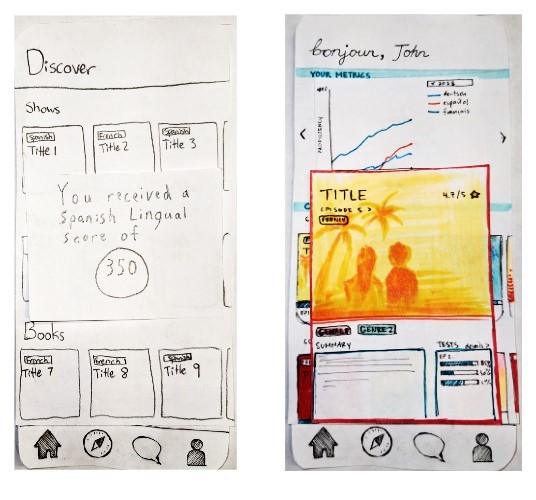 Discover
Shows
Spanish
Title 1
French
Title 2
Spanish
Title 3
You received a
Spanish Lingual
score of
350
Books
French
Title 7
French
Title 8
Spanish
Title 9
bonjour, John
YOUR METRICS
2023
deutsch
español
français
PROFICIENCY
TITLE
4.7/5
EPISODE 5 >
FRENCH
GENRE 1
GENRE 2
SUMMARY
TESTS
details >
EP 1